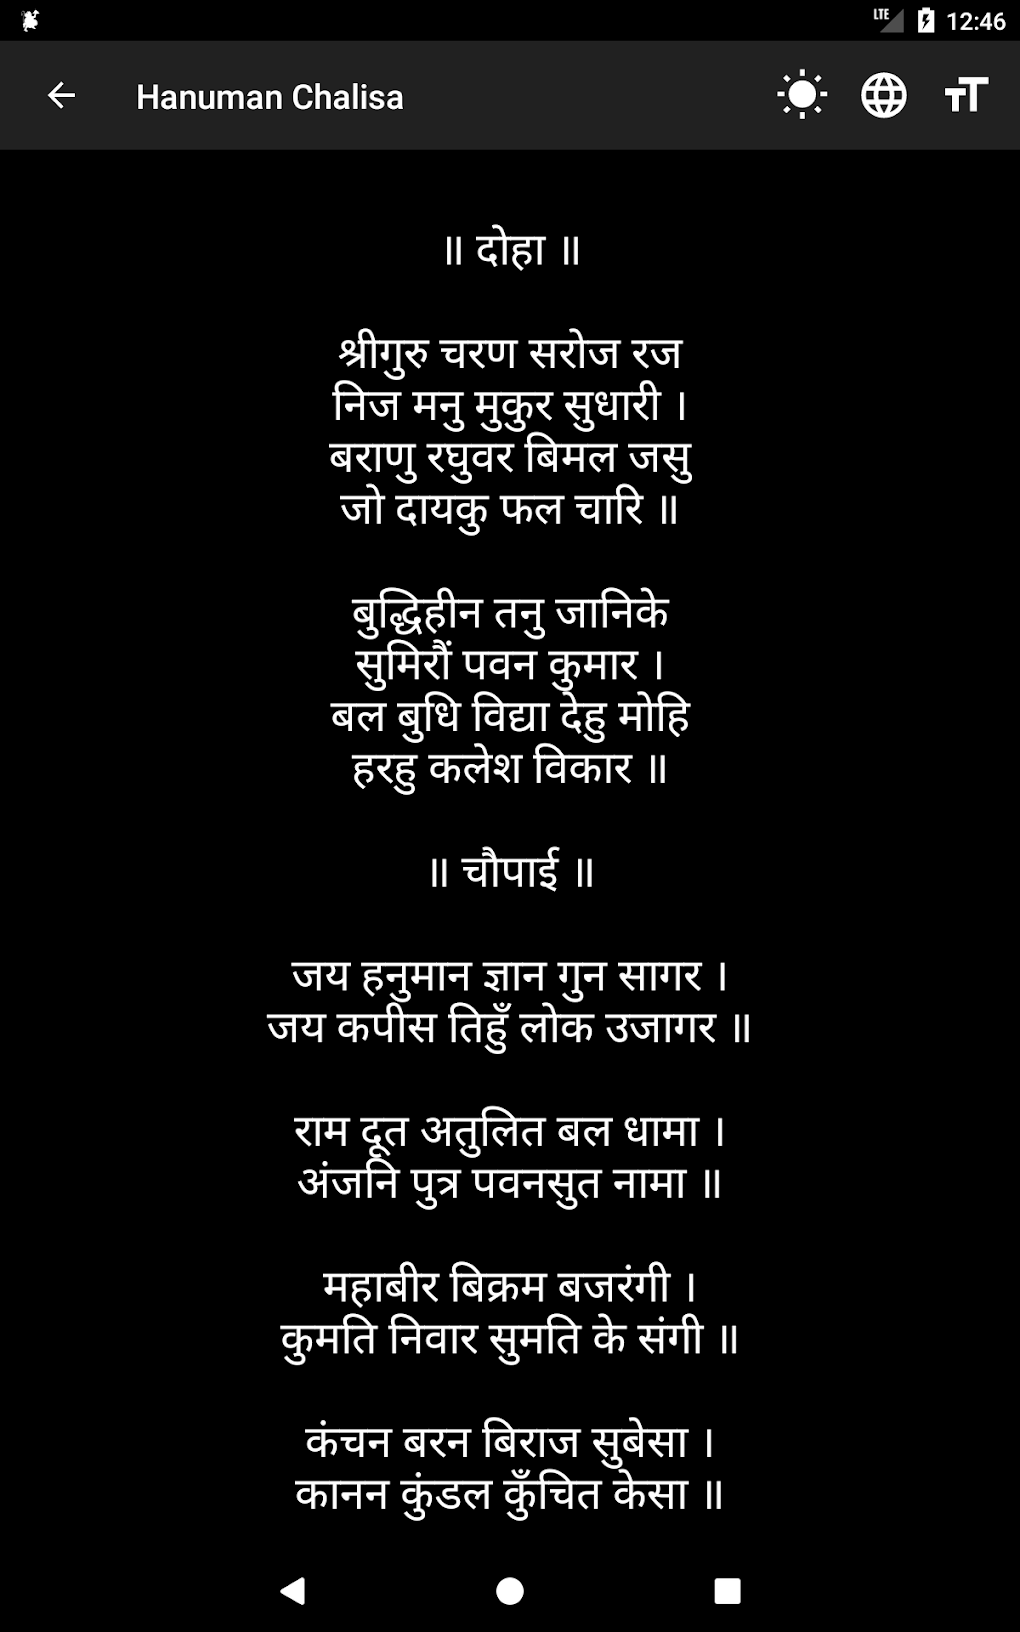 LTE 12:46
Hanuman Chalisa
॥ दोहा ॥
श्रीगुरु चरण सरोज रज
निज मनु मुकुर सुधारी ।
बराणु रघुवर बिमल जसु
जो दायकु फल चारि ॥
बुद्धिहीन तनु जानिके
सुमिरौं पवन कुमार ।
बल बुधि विद्या देहु मोहि
हरहु कलेश विकार ॥
॥ चौपाई ॥
जय हनुमान ज्ञान गुन सागर ।
जय कपीस तिहुँ लोक उजागर ॥
राम दूत अतुलित बल धामा ।
अंजनि पुत्र पवनसुत नामा ॥
महाबीर बिक्रम बजरंगी ।
कुमति निवार सुमति के संगी ॥
कंचन बरन बिराज सुबेसा ।
कानन कुंडल कुँचित केसा ॥